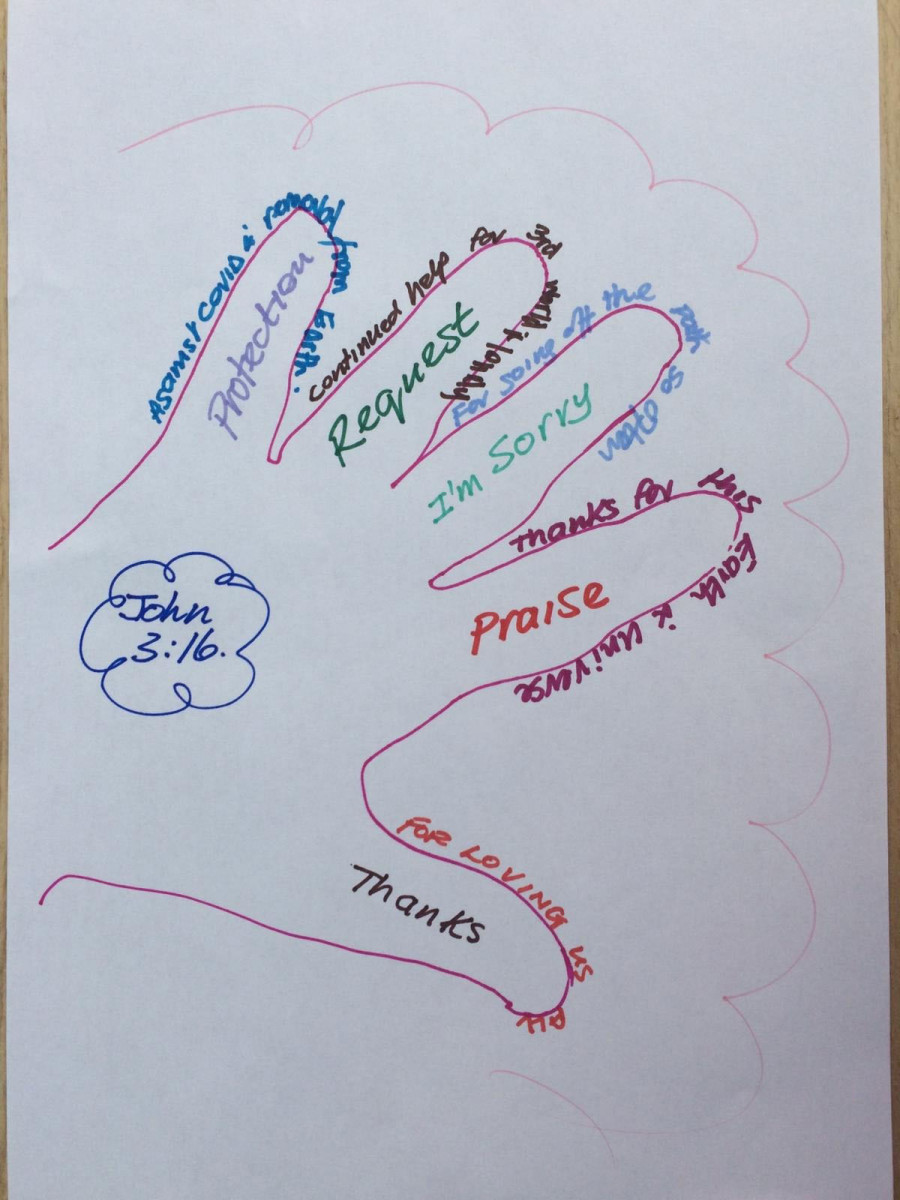 Against COVID & removal from Earth.
Protection
continued help for 3rd world &
Request
For going off the path
I'm Sorry
Thanks for this Earth & Universe
Praise
John
3:16.
FOR LOVING US ALL
Thanks